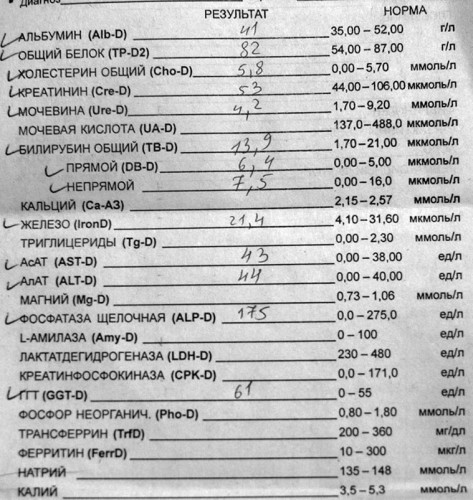 Диагноз
РЕЗУЛЬТАТ НОРМА
АЛЬБУМИН (Alb-D) 41 35,00 – 52,00 г/л
ОБЩИЙ БЕЛОК (TP-D2) 82 54,00 – 87,00 г/л
ХОЛЕСТЕРИН ОБЩИЙ (Cho-D) 5,8 0,00 – 5,70 ммоль/л
КРЕАТИНИН (Cre-D) 53 44,00 – 106,00 мкмоль/л
МОЧЕВИНА (Ure-D) 4,2 1,70 – 9,20 ммоль/л
МОЧЕВАЯ КИСЛОТА (UA-D) 137,0 – 488,0 мкмоль/л
БИЛИРУБИН ОБЩИЙ (TB-D) 13,9 1,70 – 21,00 мкмоль/л
ПРЯМОЙ (DB-D) 6,4 0,00 – 5,00 мкмоль/л
НЕПРЯМОЙ 7,5 0,00 – 16,0 мкмоль/л
КАЛЬЦИЙ (Ca-A3) 2,15 – 2,57 ммоль/л
ЖЕЛЕЗО (IronD) 21,4 4,10 – 31,60 мкмоль/л
ТРИГЛИЦЕРИДЫ (Tg-D) 0,00 – 2,30 ммоль/л
АсАТ (AST-D) 43 0,00 – 38,00 ед/л
АлАТ (ALT-D) 44 0,00 – 40,00 ед/л
МАГНИЙ (Mg-D) 0,73 – 1,06 ммоль/л
ФОСФАТАЗА ЩЕЛОЧНАЯ (ALP-D) 175 0,0 – 275,0 ед/л
L-АМИЛАЗА (Amy-D) 0 – 100 ед/л
ЛАКТАТДЕГИДРОГЕНАЗА (LDH-D) 230 – 480 ед/л
КРЕАТИНФОСФОКИНАЗА (CPK-D) 0,0 – 171,0 ед/л
ГГТ (GGT-D) 61 0 – 55 ед/л
ФОСФОР НЕОРГАНИЧ. (Pho-D) 0,80 – 1,80 ммоль/л
ТРАНСФЕРРИН (TrfD) 200 – 360 мг/дл
ФЕРРИТИН (FerrD) 10 – 300 мкг/л
НАТРИЙ 135 – 148 ммоль/л
КАЛИЙ 3,5 – 5,3 ммоль/л